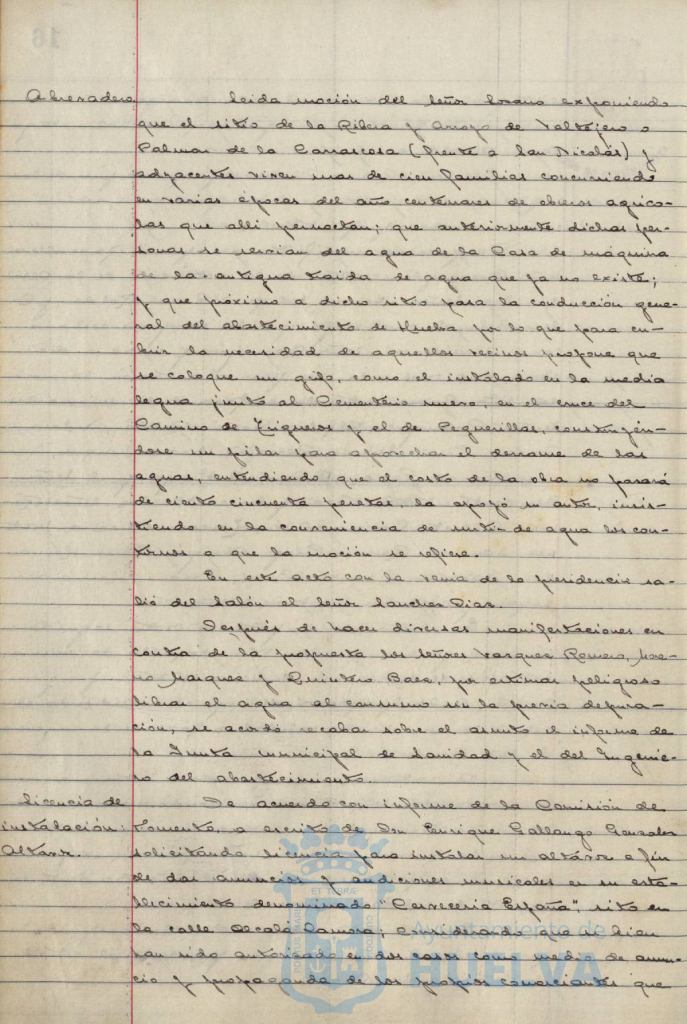 Abrevadero.
Leida moción del Señor Lozano exponiendo
que el sitio de la Ribera y Arroyo de Valtejero o
Palmar de la Carrascosa (frente a San Nicolás) y
adyacentes viven mas de cien familias concurriendo
en varias épocas del año centenares de obreros agrico-
las que alli pernoctan; que anteriormente dichas per-
sonas se servian del agua de la Casa de máquina
de la antigua traida de agua que ya no existe;
y que próximo a dicho sitio pasa la conducción gene-
ral del abastecimiento de Huelva por lo que para cu-
brir la necesidad de aquellos vecinos propone que
se coloque un grifo, como el instalado en la media
legua junto al Cementerio nuevo, en el cruce del
Camino de Trigueros y el de Peguerillas, construyén-
dose un pilar para aprovechar el derrame de las
aguas, entendiendo que el costo de la obra no pasará
de ciento cincuenta pesetas, la apoyó su autor, insis-
tiendo en la conveniencia de surtir de agua los con-
tornos a que la moción se refiere.
En este acto con la venia de la presidencia sa-
lió del Salón el Señor Sanchez Diaz.
Después de hacer diversas manifestaciones en
contra de la propuesta los Señores Vazquez Romero, More-
no Marquez y Quintero Baez, por estimar peligroso
librar el agua al consumo sin la previa depura-
ción, se acordó recabar sobre el asunto el informe de
la Junta municipal de Sanidad y el del Ingenie-
ro del abastecimiento.
Licencia de
instalación:
Altavoz.
De acuerdo con informe de la Comisión de
Fomento, a escrito de Don Enrique Gallango Gonzalez
solicitando licencia para instalar un altavoz a fin
de dar anuncios y audiciones musicales en su esta-
blecimiento denominado "Cervecería España", sito en
la calle Alcalá Zamora; considerando que si bien
han sido autorizado en dos casos como medio de anun-
cio y propaganda de los propios comerciantes que
Ayuntamiento de
HUELVA